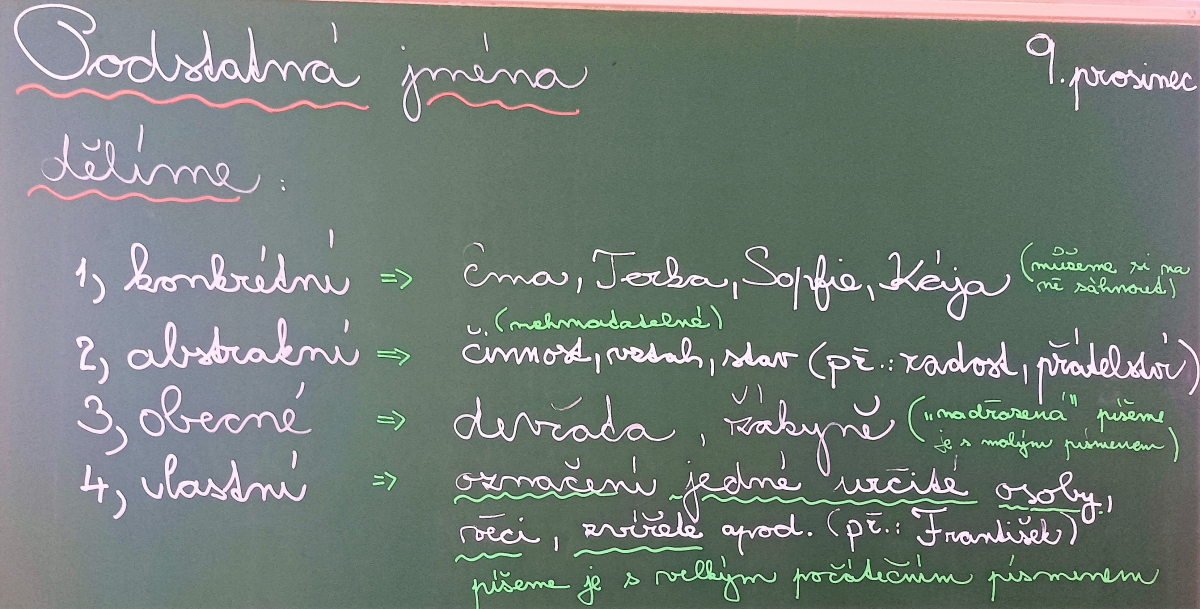 Podstatná jména
9. prosinec
dělíme:
1, konkrétní => Ema, Terka, Sopfie, Kája (můžeme si na
ně sáhnout)
(nehmatatelné)
2, abstrakní => činnost, vztah, stav (př.: radost, přátelství)
3, obecné => děvčata, žákyně („nadřazená" píšeme
je s malým písmenem)
4, vlastní => označení jedné určité osoby,
věci, zvířete apod. (př.: František)
píšeme je s velkým počátečním písmenem